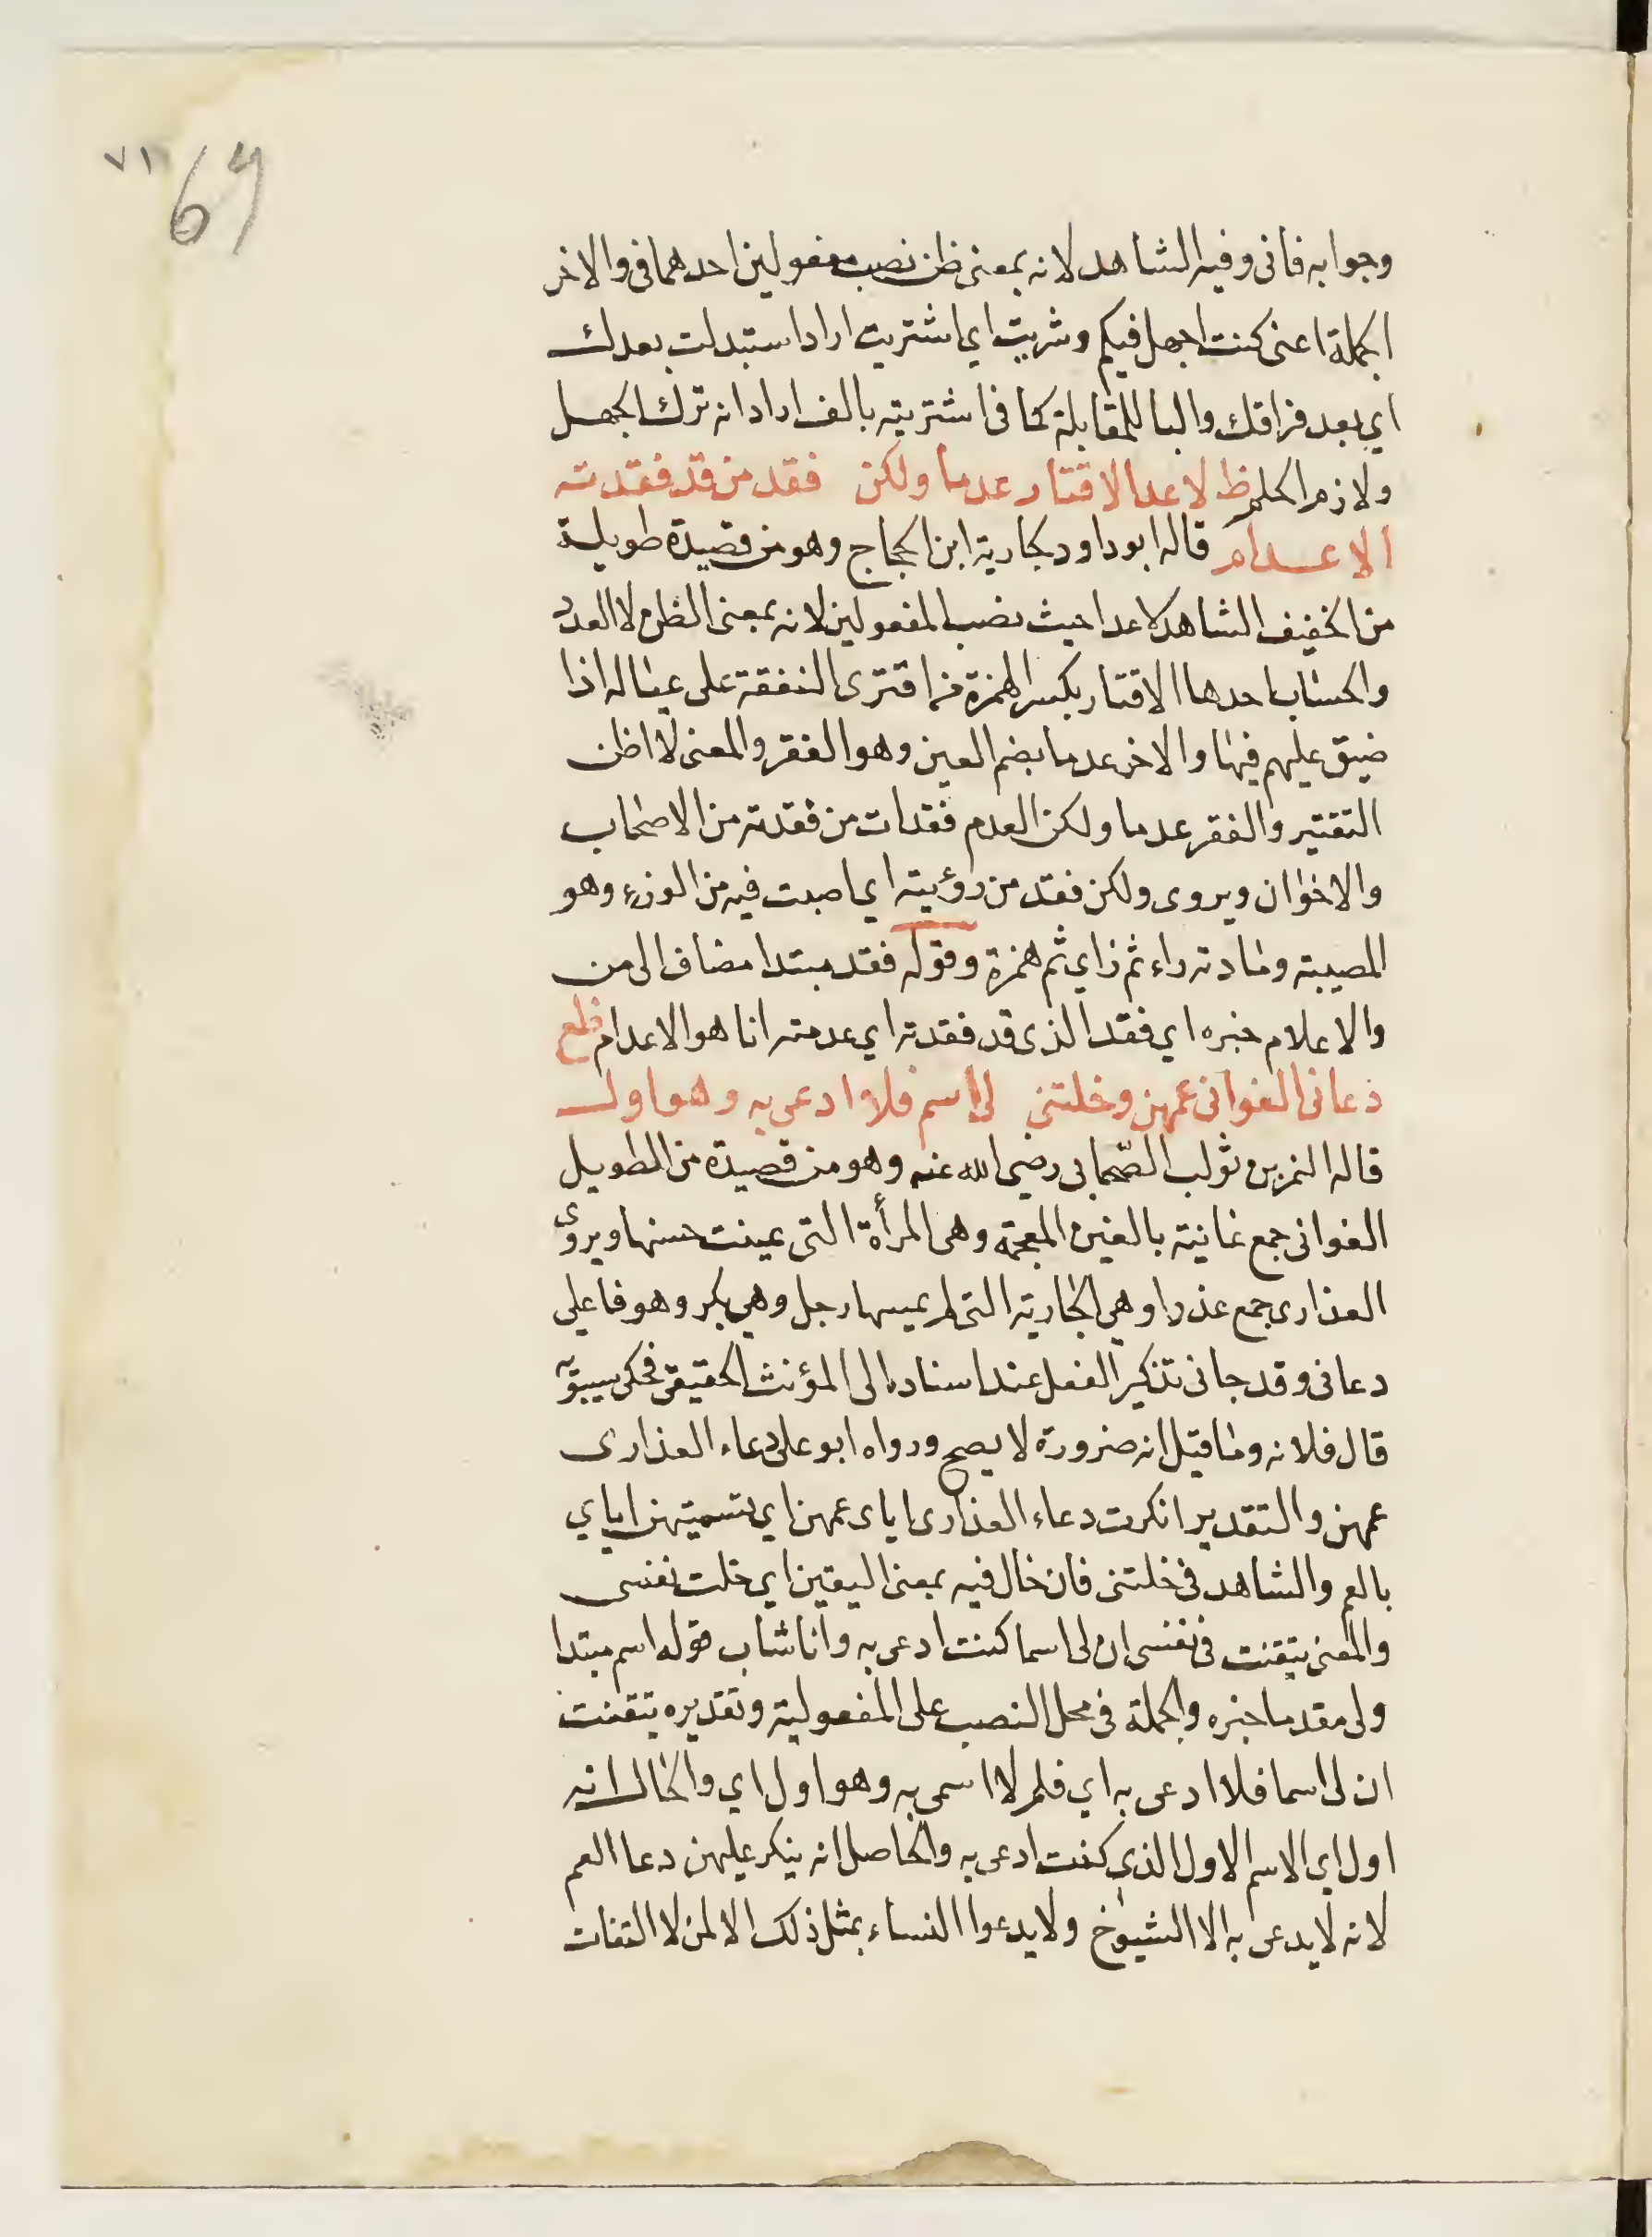 ٧١
69
وجوابه فانى وفيه الشاهد لانه بمعنى ظن نصب مفعولين احدهما فى والاخر
الجملة اعنى كنت اجهل فيكم وشريت اي اشتريت اراد استبدلت بعدك
اي بعد فراقك والبا للمقابلة كما فى اشتريته بالف اراد انه ترك الجهل
ولازم الحلم ظ لا عد الاقتار عدما ولكن فقد من قد فقدته
الاعدام قاله ابو داود بجارية ابن الحجاج وهو من قصيدة طويلة
من الخفيف الشاهد لا عد احيث نصب المفعولين لانه بمعنى الظن لا العدد
والحساب احدها الاقتار بكسر الهمزة من اقترى النفقة على عياله اذا
ضيق عليهم فيها والاخر عدما بضم العين وهو الفقر والمعنى لا اظن
التقتير والفقر عدما ولكن العدم فقدات من فقدته من الاصحاب
والاخوان ويروى ولكن فقد من رؤيته اي اصبت فيه من الوزء وهو
المصيبة ومادته راء ثم زاي ثم همزة وقوله فقد مبتدا مضاف الى من
والاعلام خبره اي فقد الذى قد فقدته اي عدمته انا هو الاعدام ظع
دعانى الغوانى عمهن وخلتنى لى اسم فلا ادعى به وهو اول
قاله النمر بن تولب الصحابى رضى الله عنه وهو من قصيدة من الطويل
الغوانى جمع غانية بالغين المعجمة وهى المرأة التى عينت حسنها ويروى
العذارى جمع عذرا وهي الجارية التى لم يمسها رجل وهي بكر وهو فاعلى
دعانى وقد جا فى تذكير الفعل عند اسناده الى المؤنث الحقيقى فحكى سيبويه
قال فلانه وما قيل انه ضرورة لا يصح ورواه ابو على دعاء العذارى
عمهن والتقدير انكرت دعاء العذارى اياى عمهن اي تسميتهن اياي
بالعم والشاهد فى خلتنى فان خال فيه بمعنى اليقين اي خلت نفسى
والمعنى تيقنت فى نفسى ان لى اسما كنت ادعى به وانا شاب قوله اسم مبتدا
ولى مقدما خبره والجملة فى محل النصب على المفعولية وتقديره تيقنت
ان لى اسما فلا ادعى به اي فلم لا اسمى به وهو اول اي والحال انه
اول اي الاسم الاول الذى كنت ادعى به والحاصل انه ينكر عليهن دعا العم
لانه لا يدعى به الا الشيوخ ولا يدعوا النساء بمثل ذلك الا لمن لا التفات